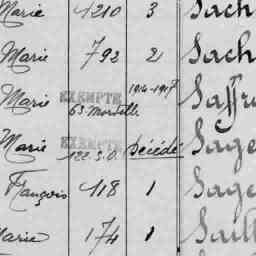 Marie 4210 3 Sach
Marie 792 2 Sach
Marie EXEMPTE 63. Morbelle 1914-1917 Saffr
Marie EXEMPTE 122 S.O. Décédé Sage
François 418 1 Sage
Marie 174 1 Saill